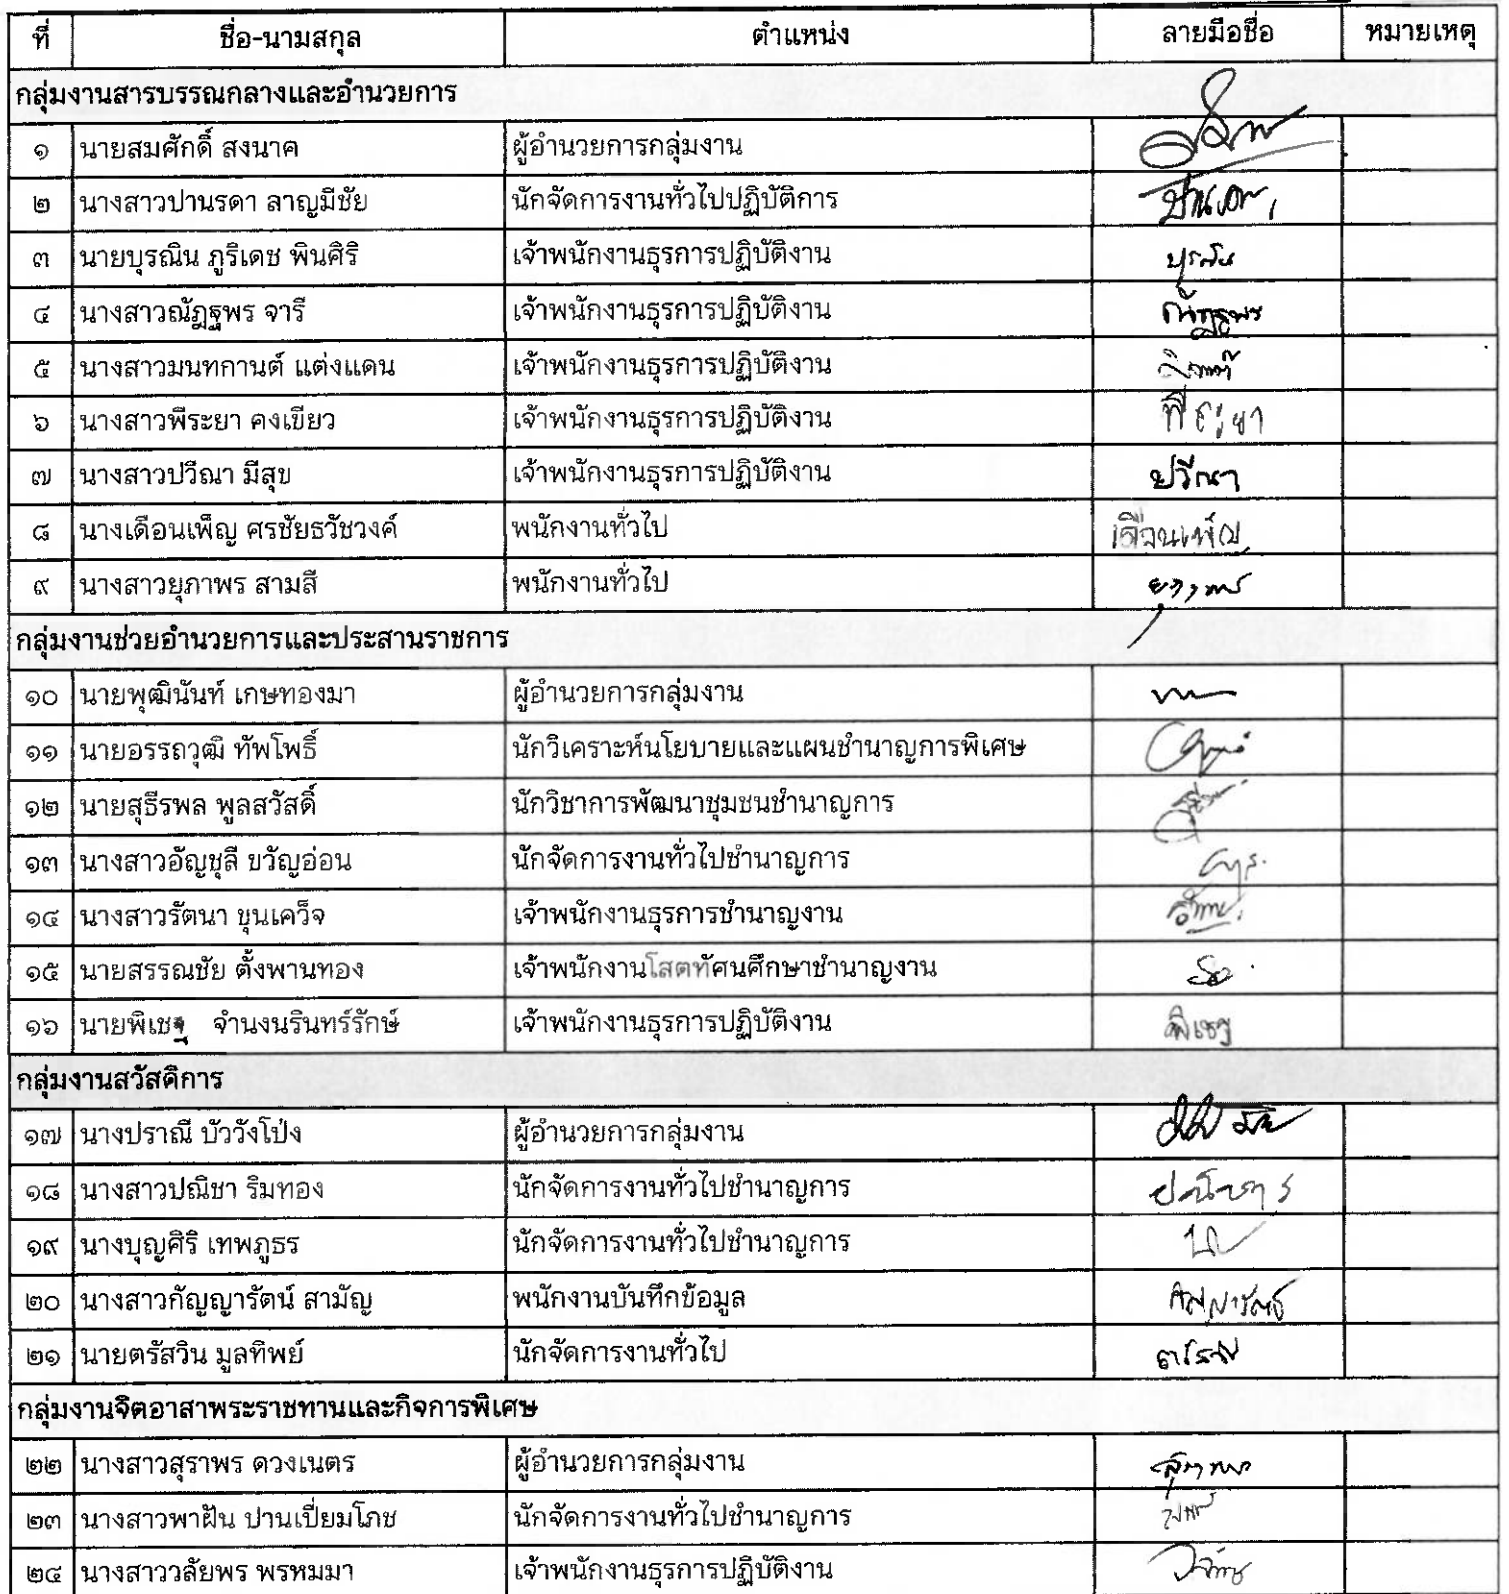 ที่ ชื่อ-นามสกุล ตำแหน่ง ลายมือชื่อ หมายเหตุ
กลุ่มงานสารบรรณกลางและอำนวยการ
๑ นายสมศักดิ์ สงนาค ผู้อำนวยการกลุ่มงาน
๒ นางสาวปานรดา ลาญมีชัย นักจัดการงานทั่วไปปฏิบัติการ
๓ นายบุรณิน ภูริเดช พินศิริ เจ้าพนักงานธุรการปฏิบัติงาน บุรณิน
๔ นางสาวณัฏฐพร จารี เจ้าพนักงานธุรการปฏิบัติงาน ณัฏฐพร
๕ นางสาวมนทกานต์ แต่งแดน เจ้าพนักงานธุรการปฏิบัติงาน
๖ นางสาวพีระยา คงเขียว เจ้าพนักงานธุรการปฏิบัติงาน พีระยา
๗ นางสาวปวีณา มีสุข เจ้าพนักงานธุรการปฏิบัติงาน ปวีณา
๘ นางเดือนเพ็ญ ศรชัยธวัชวงค์ พนักงานทั่วไป เดือนเพ็ญ
๙ นางสาวยุภาพร สามสี พนักงานทั่วไป
กลุ่มงานช่วยอำนวยการและประสานราชการ
๑๐ นายพุฒินันท์ เกษทองมา ผู้อำนวยการกลุ่มงาน
๑๑ นายอรรถวุฒิ ทัพโพธิ์ นักวิเคราะห์นโยบายและแผนชำนาญการพิเศษ
๑๒ นายสุธีรพล พูลสวัสดิ์ นักวิชาการพัฒนาชุมชนชำนาญการ
๑๓ นางสาวอัญชุลี ขวัญอ่อน นักจัดการงานทั่วไปชำนาญการ
๑๔ นางสาวรัตนา ขุนเคว็จ เจ้าพนักงานธุรการชำนาญงาน
๑๕ นายสรรณชัย ตั้งพานทอง เจ้าพนักงานโสตทัศนศึกษาชำนาญงาน
๑๖ นายพิเชฐ จำนงนรินทร์รักษ์ เจ้าพนักงานธุรการปฏิบัติงาน พิเชฐ
กลุ่มงานสวัสดิการ
๑๗ นางปราณี บัววังโป่ง ผู้อำนวยการกลุ่มงาน
๑๘ นางสาวปณิชา ริมทอง นักจัดการงานทั่วไปชำนาญการ
๑๙ นางบุญศิริ เทพภูธร นักจัดการงานทั่วไปชำนาญการ
๒๐ นางสาวกัญญารัตน์ สามัญ พนักงานบันทึกข้อมูล กัญญารัตน์
๒๑ นายตรัสวิน มูลทิพย์ นักจัดการงานทั่วไป
กลุ่มงานจิตอาสาพระราชทานและกิจการพิเศษ
๒๒ นางสาวสุราพร ดวงเนตร ผู้อำนวยการกลุ่มงาน
๒๓ นางสาวพาฝัน ปานเปี่ยมโภช นักจัดการงานทั่วไปชำนาญการ
๒๔ นางสาววลัยพร พรหมมา เจ้าพนักงานธุรการปฏิบัติงาน